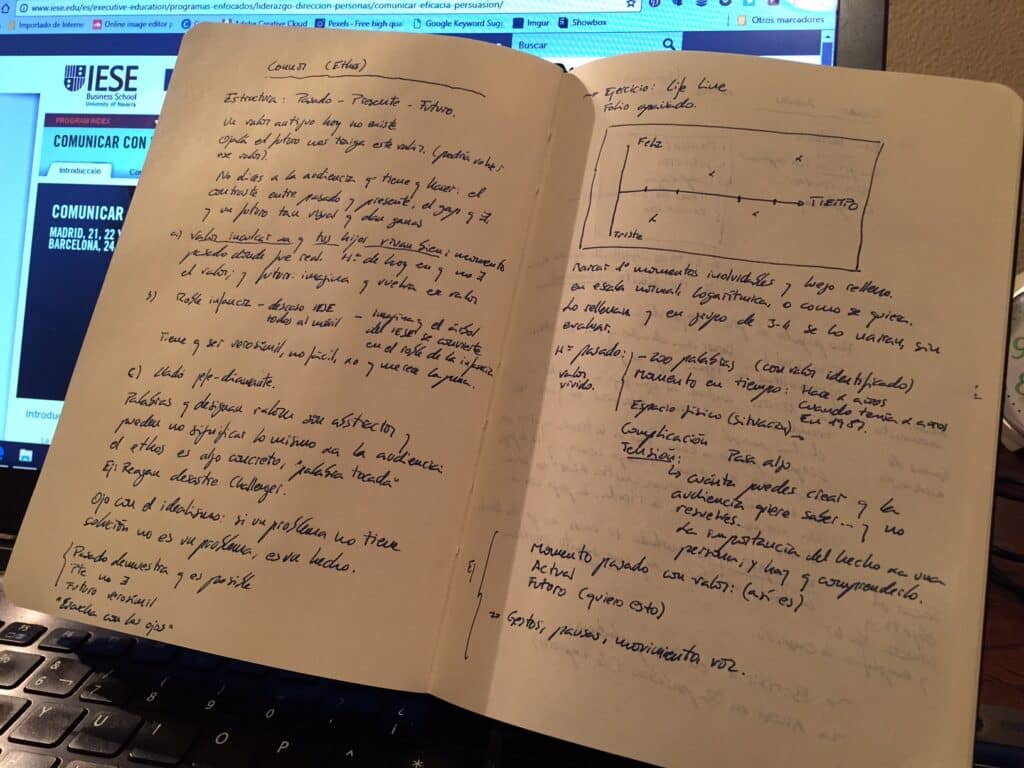 www.iese.edu/es/executive-education/programas-enfocados/liderazgo-direccion-personas/comunicar-eficacia-persuasion/
Importado de Internet
Online image editor
Adobe Creative Cloud
Pexels - Free high qual
Google Keyword Sug
Imgur
Showbox
Otros marcadores
Buscar
IESE
Business School
University of Navarra
PROGRAM INDEX
COMUNICAR CON
Introducción
COMUNICAR
MADRID, 21, 22 Y
BARCELONA, 24
Introdu
(Ethos)
Estructura: Pasado - Presente - Futuro.
Un valor antiguo hoy no existe
Ojalá el futuro nos traiga este valor. (podría volver
ese valor).
No dices a la audiencia q tiene q hacer: el
contraste entre pasado y presente, el gap q ∃
y un futuro tan visual q dan ganas
a) valor inculcar q tus hijos vivan bien; momento
pasado donde fue real. Hª de hoy en q no ∃
el valor; y futuro: imagina q vuelva ese valor
b) Roble infancia - descanso IESE - imagina q el árbol
todos al móvil
del IESE se convierte
en el roble de la infancia
Tiene q ser verosímil, no fácil, no q merece la pena.
c) Lladó jefe-diamante.
Palabras q designan valores son abstractos y
pueden no significar lo mismo xa la audiencia:
el ethos es algo concreto, "palabra tocada"
Ej: Reagan desastre Challenger.
Ojo con el idealismo: si un problema no tiene
solución no es un problema, es un hecho.
Pasado demuestra q es posible
Pte no ∃
Futuro verosímil
"Escucha con los ojos"
→ Ejercicio: Life Line
Folio apaisado.
Feliz
x
x
TIEMPO
x
x
Triste
Marcar 1º momentos inolvidables y luego relleno.
en escala normal, logarítmica, o como se quiera.
Lo rellenan y en grupo de 3-4 se lo narran, sin
evaluar.
Hª pasado: - 200 palabras (con valor identificado)
valor
vivido.
Momento en tiempo: Hace x años
Cuando tenía x años
En 1987.
Espacio físico (situación)
Complicación Pasa algo
Tensión:
↳ cuánta puedes crear q la
audiencia quiere saber... y no
resuelves.
La importancia del hecho xa una
persona, y hay q comprenderlo.
Ej
Momento pasado con valor: (así es)
Actual
Futuro (quiero esto)
→ Gestos, pausas, movimiento, voz.